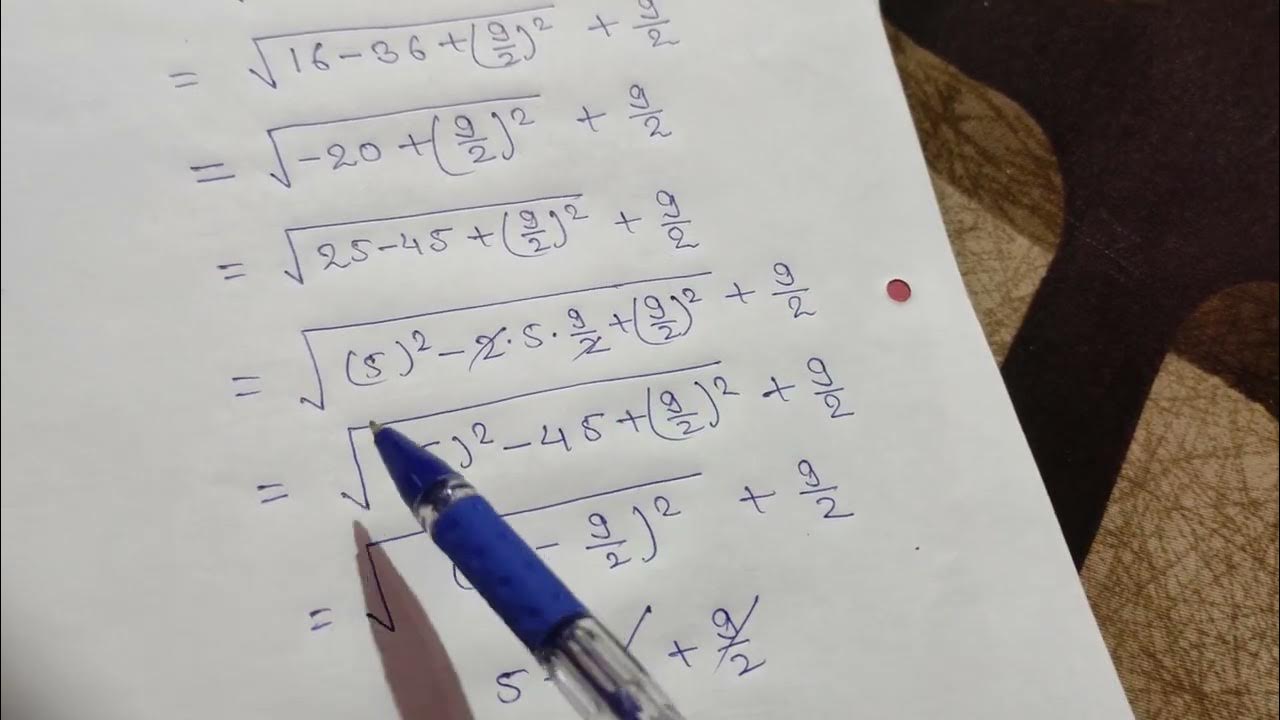 = √(16-36+(9/2)²) + 9/2
= √(-20+(9/2)²) + 9/2
= √(25-45+(9/2)²) + 9/2
= √((5)²-2·5·9/2+(9/2)²) + 9/2
= √( )²-45+(9/2)² + 9/2
= √( - 9/2)² + 9/2
5 - + 9/2